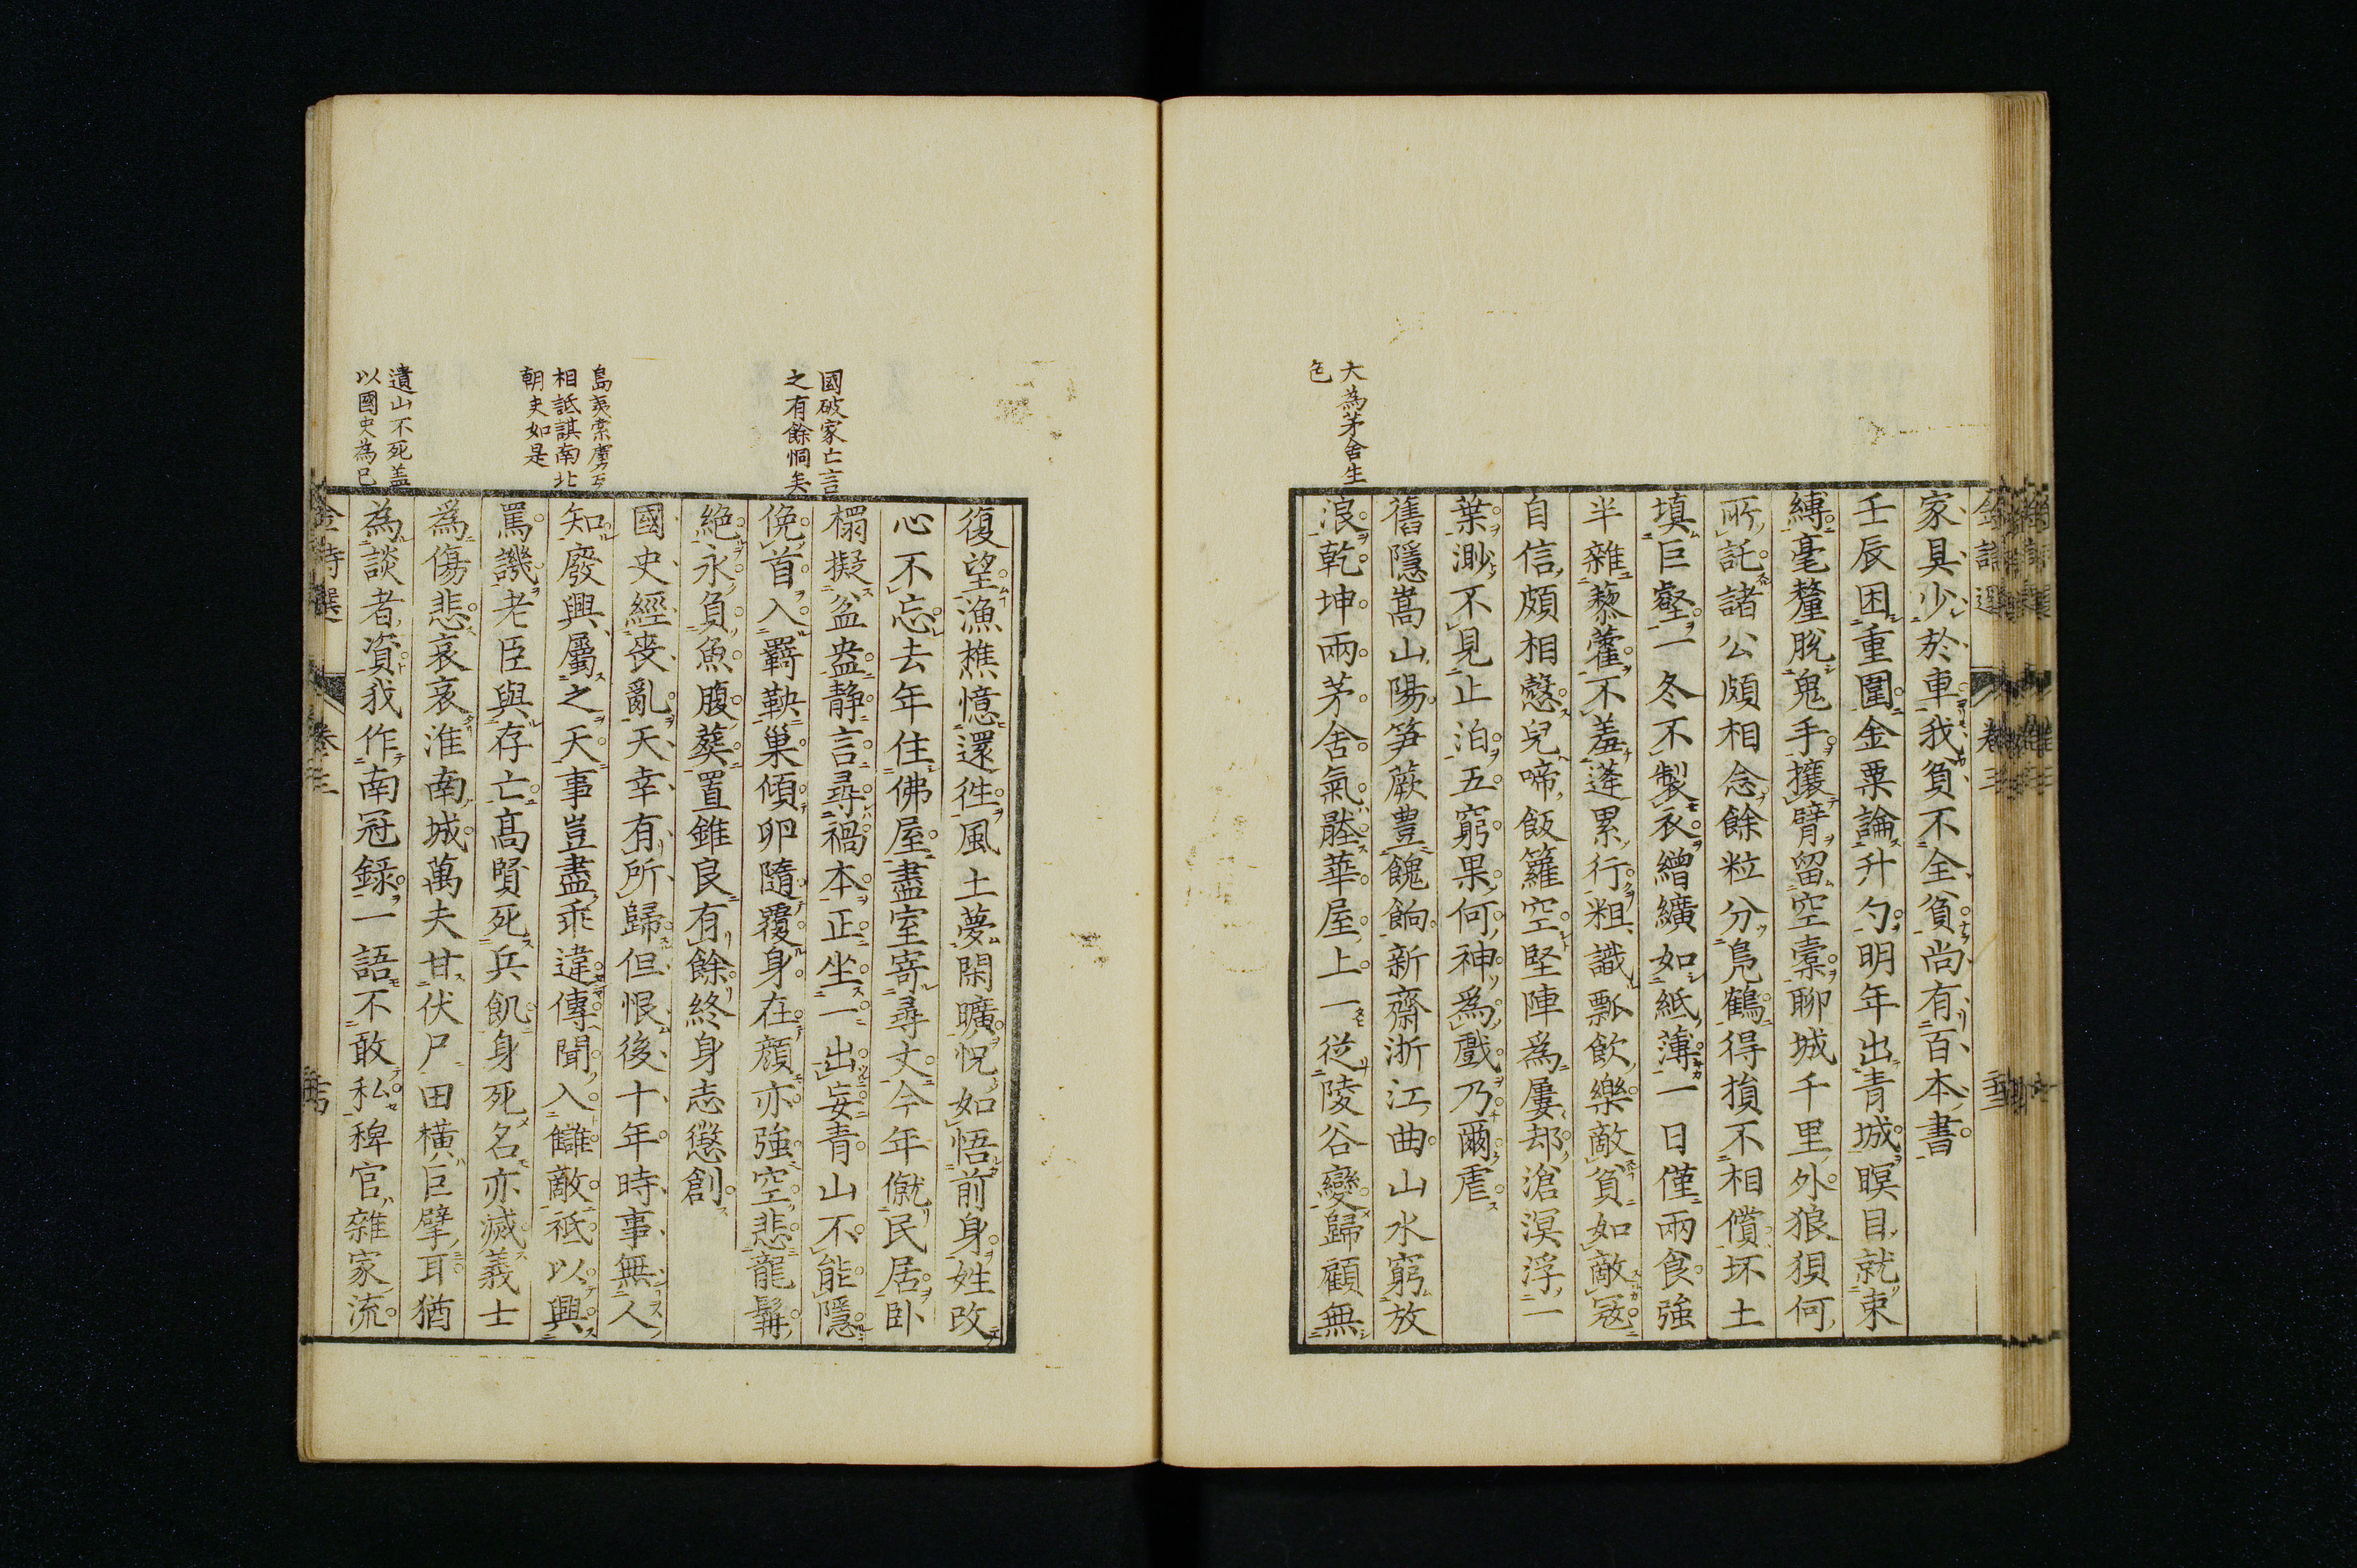 大為茅舍生
色
家具少於車我負不全負尚有百本書
壬辰困重圍金粟論升勺明年出青城瞑目就束
縛毫釐脫鬼手攘臂留空橐聊城千里外狼狽何
所託諸公頗相念餘粒分鳧鶴得損不相償抔土
填巨壑一冬不製衣繒纊如紙薄一日僅兩食強
半雜藜藿不羞蓬累行粗識瓢飲樂敵貧如敵寇
自信頗相慤兒啼飯籮空堅陣為屢却滄溟浮一
葉渺不見止泊五窮果何神為戲乃爾虐
舊隱嵩山陽笋蕨豊餽餉新齋浙江曲山水窮放
浪乾坤兩茅舍氣壓華屋上一從陵谷變歸顧無
國破家亡言
之有餘恫矣
島夷索虜互
相詆諆南北
朝史如是
遺山不死盖
以國史為已
復望漁樵憶還徃風土夢閑曠怳如悟前身姓改
心不忘去年住佛屋盡室寄尋丈今年僦民居卧
榻擬盆盎静言尋禍本正坐一出妄青山不能隱
俛首入羈鞅巢傾卵隨覆身在顔亦強空悲龍髯
絶永負魚腹葬置錐良有餘終身志懲創
國史經喪亂天幸有所歸但恨後十年時事無人
知廢興屬之天事豈盡乖違傳聞入讎敵祗以興
罵譏老臣與存亡高賢死兵飢身死名亦滅義士
為傷悲哀哀淮南城萬夫甘伏尸田橫巨擘耳猶
為談者資我作南冠録一語不敢私稗官雜家流